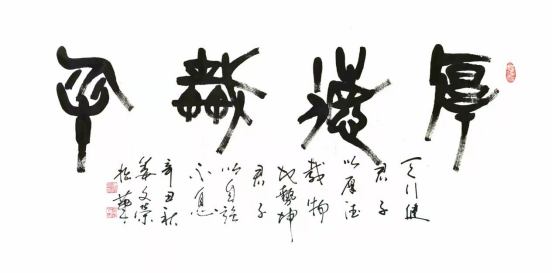 厚德載
天行健
君子
以厚德
載物
地勢坤
君子
以自強
不息
辛丑秋
姜文榮